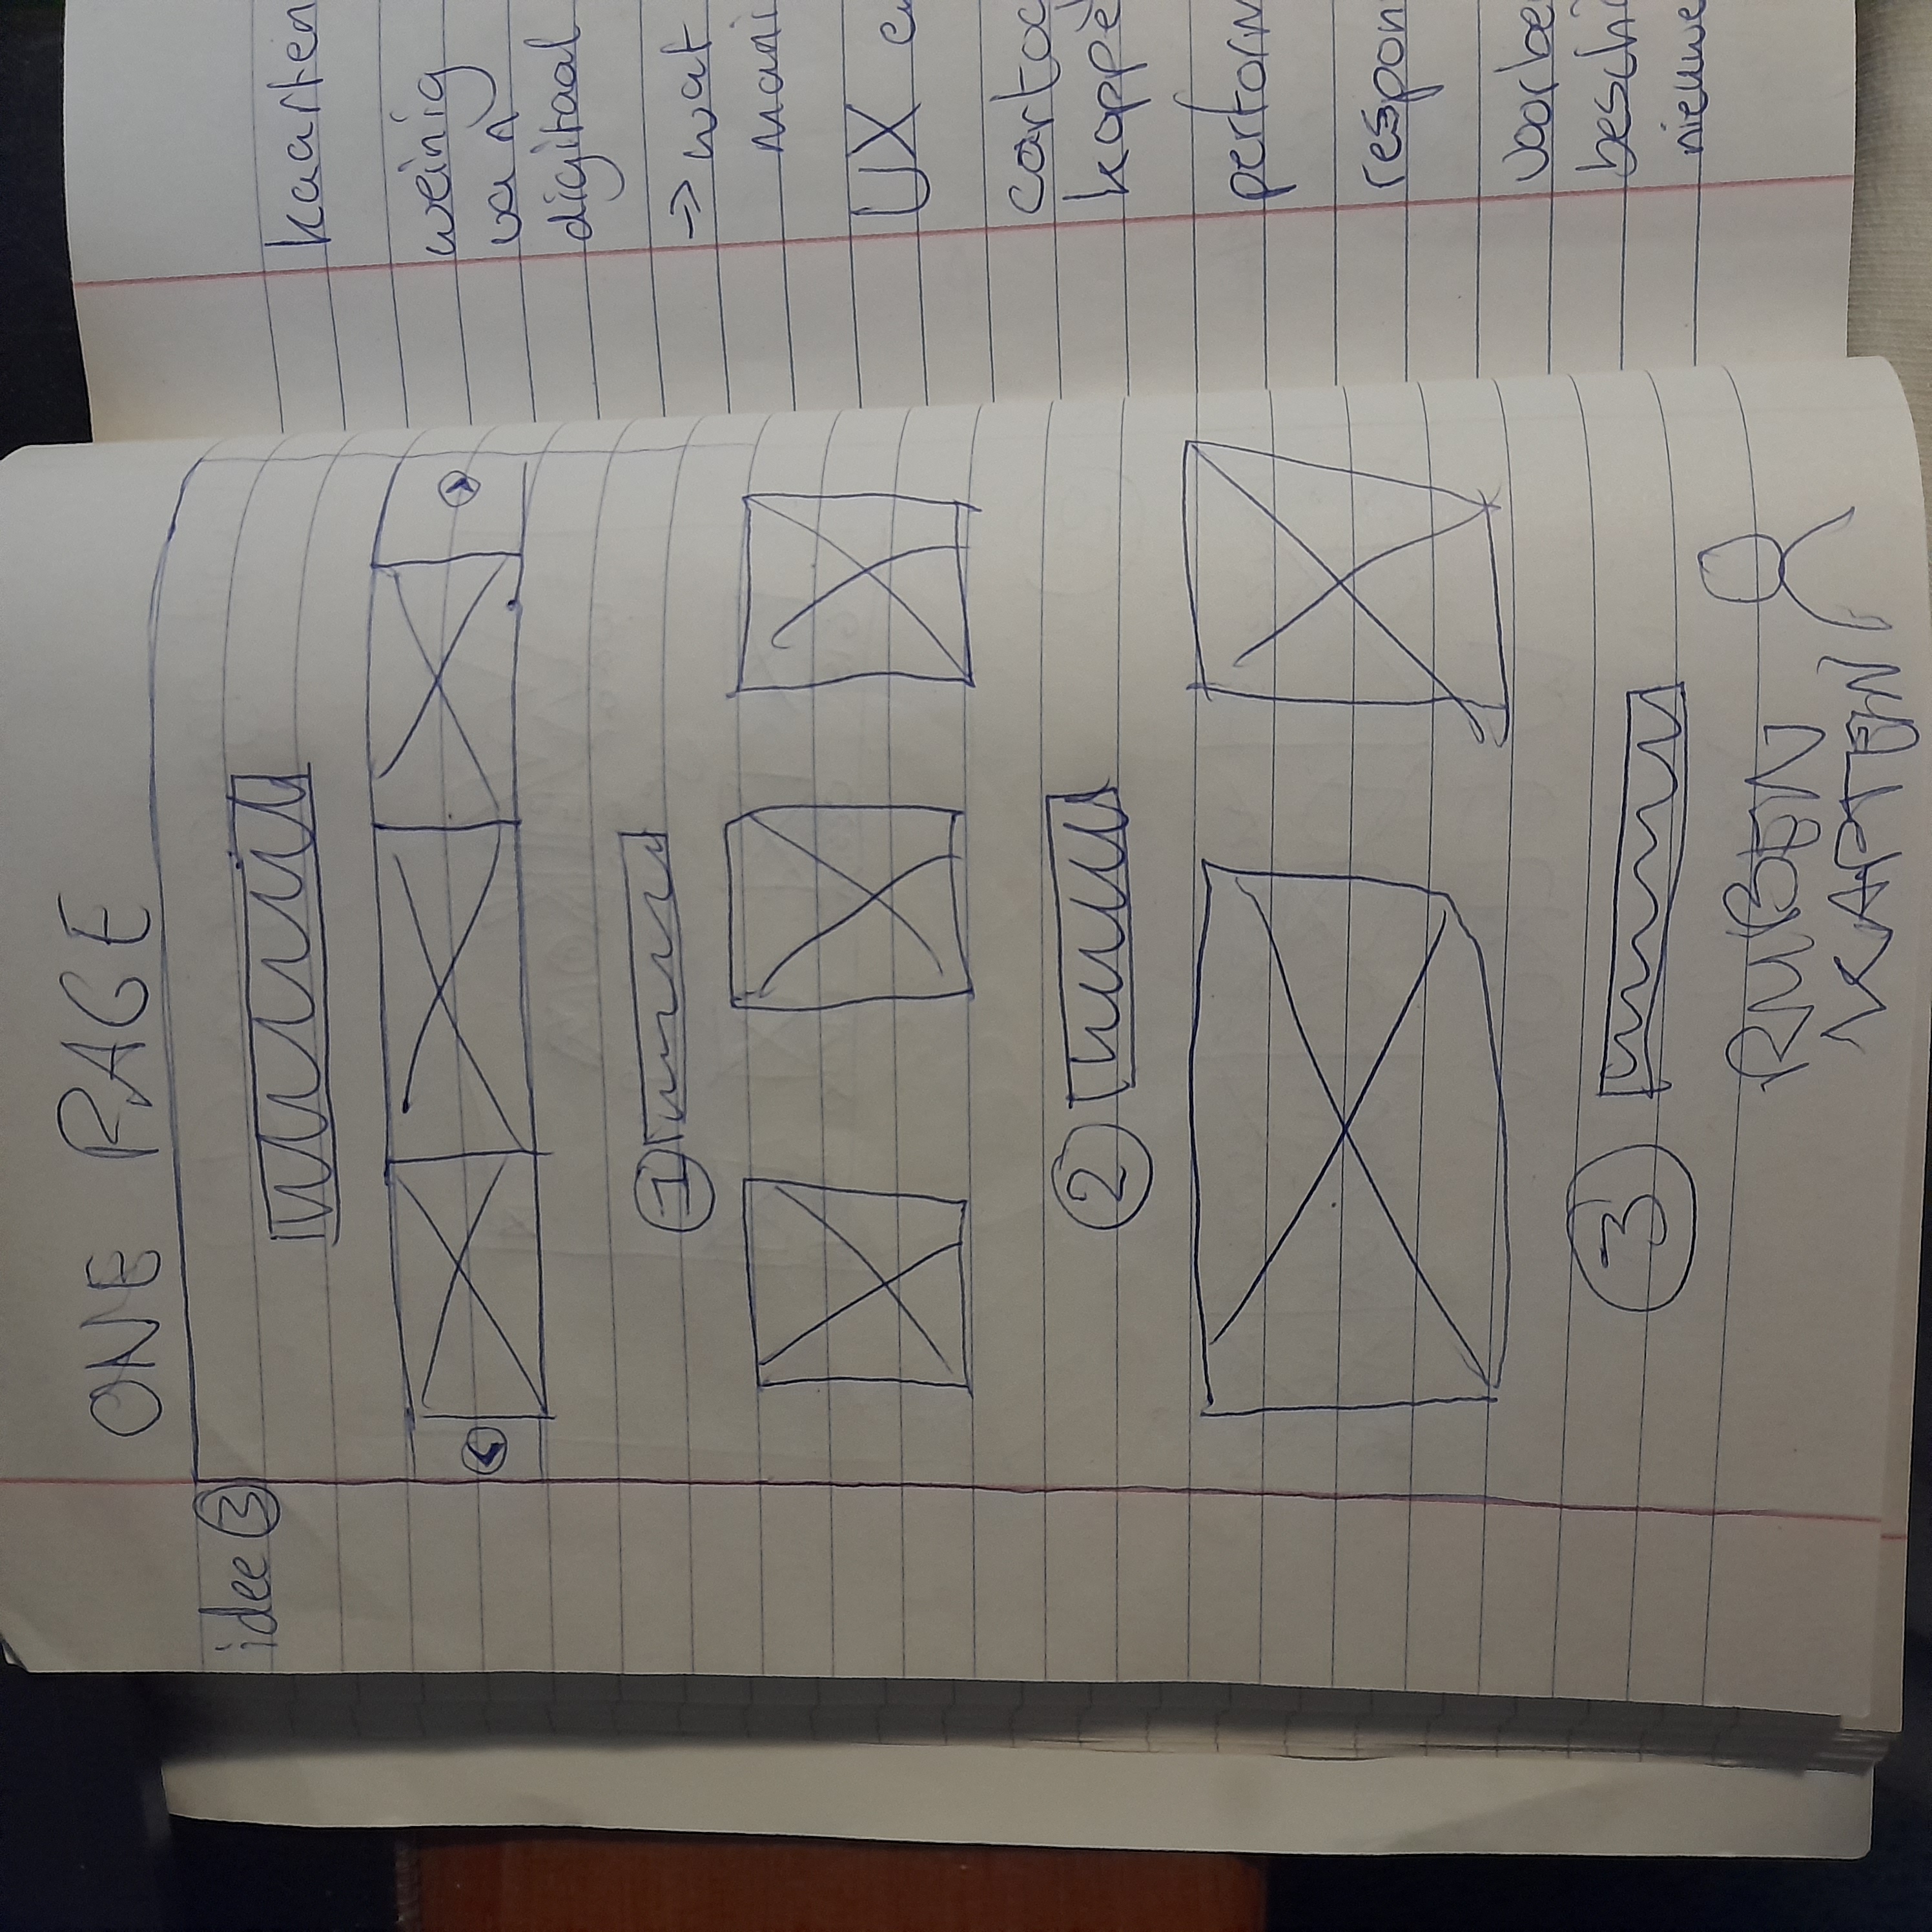 ONE PAGE
idee 3
1
2
3
RUBEN
KAPTEIN
kaarten
weinig
van
digitaal
→ wat
mani
UX e
cartoc
koppè
perform
respon
voorbe
beschi
nieuwe